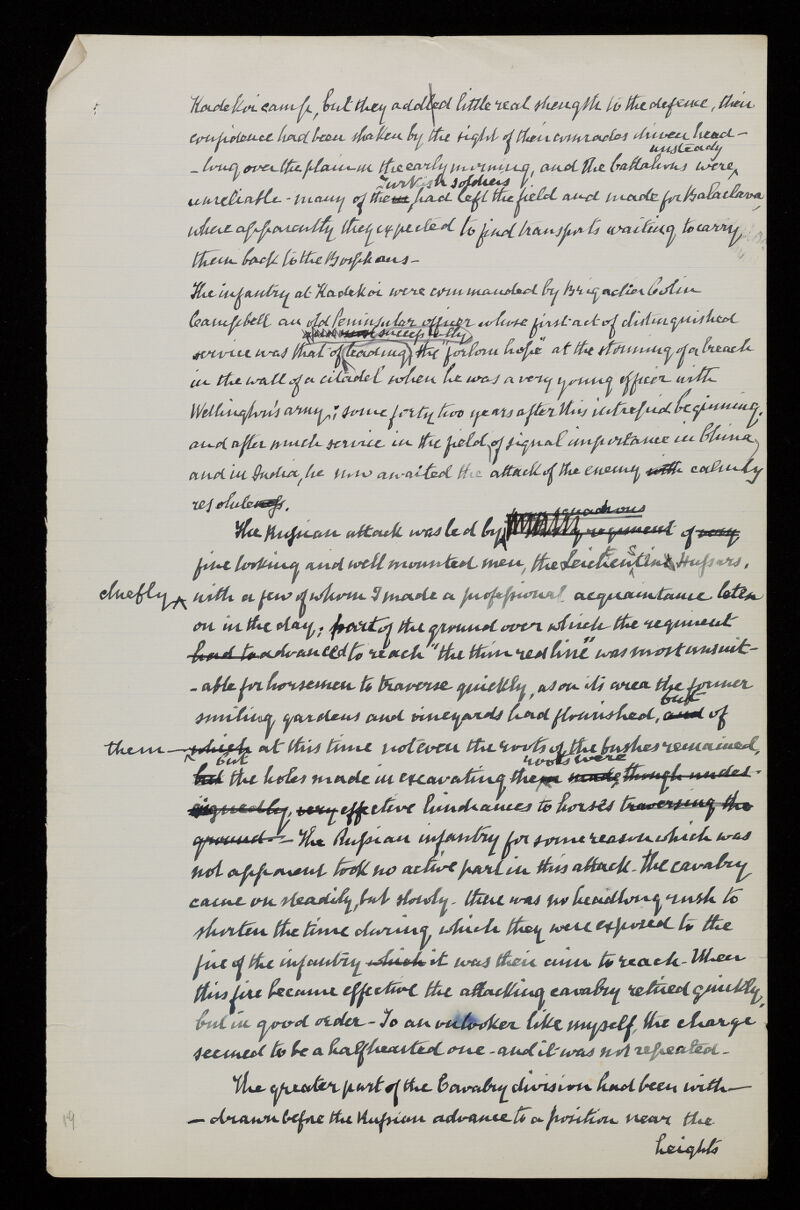 Kadekoi camp, but they added little real strength to the defence, their
confidence had been shaken by the sight of their comrades driven head-
-long over the plain in the early morning, and the battalions were
unsteady
unreliable - many of them had left the field and made for Balaclava,
Turkish soldiers
where apparently they expected to find transports waiting to carry
them back to the Bosphorus -
The infantry at Kadekoi were commanded by Brigadier Colin
Campbell an old Peninsular officer whose first act of distinguished
successfully
service was that of leading the "forlorn hope" at the storming of a breach
in the wall of a citadel when he was a very young officer with
Wellington's army; some forty two years after this intrepid beginning,
and after much service in the field, of signal importance in China,
and in India, he now awaited the attack of the enemy with calmly
resoluteness.
squadrons
The Russian attack was led by regiment of very
fine looking and well mounted men, the Hussars,
chiefly with a few of whom I made a professional acquaintance later
on in the day; part of the ground over which the regiment
had to advanced to reach "the thin red line" was most unsuit-
-able for horsemen to traverse quickly, as on its area the former
smiling gardens and vineyards had flourished, and of
but
them - which at this time not even the roots of the bushes remained,
but roots were
but the holes made in excavating them made, though undes-
ignedly, very effective hindrances to horses traversing the
ground. - The Russian infantry for some reason which was
not apparent took no active part in this attack - the cavalry
came on steadily, but slowly - there was no headlong rush to
shorten the time during which they were exposed to the
fire of the infantry which it was their aim to reach - When
this fire became effective the attacking cavalry retired quickly,
but in good order - To an onlooker like myself, the charge
seemed to be a halfhearted one - and it was not repeated -
The greater part of the Cavalry division had been with-
- drawn before the Russian advance to a position near the
heights
19